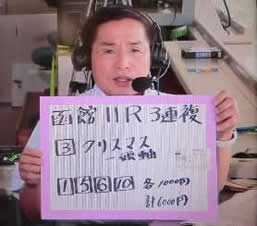 函館11R 3連複
3 クリスマス
一頭軸
1 5 6 10 各1000円
計6000円